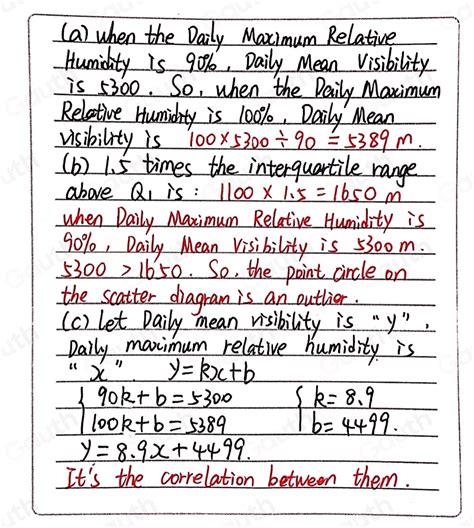 (a) when the Daily Maximum Relative
Humidity is 90%, Daily Mean Visibility
is 5300. So, when the Daily Maximum
Relative Humidity is 100%, Daily Mean
visibility is 100×5300÷90 = 5389 m.
(b) 1.5 times the interquartile range
above Q₁ is: 1100 × 1.5 = 1650 m
when Daily Maximum Relative Humidity is
90%, Daily Mean Visibility is 5300 m.
5300 > 1650. So, the point circle on
the scatter diagram is an outlier.
(c) let Daily mean visibility is "y",
Daily maximum relative humidity is
"x". y=kx+b
{ 90k+b=5300 { k=8.9
100k+b=5389 b=4499.
y=8.9x+4499.
It's the correlation between them.